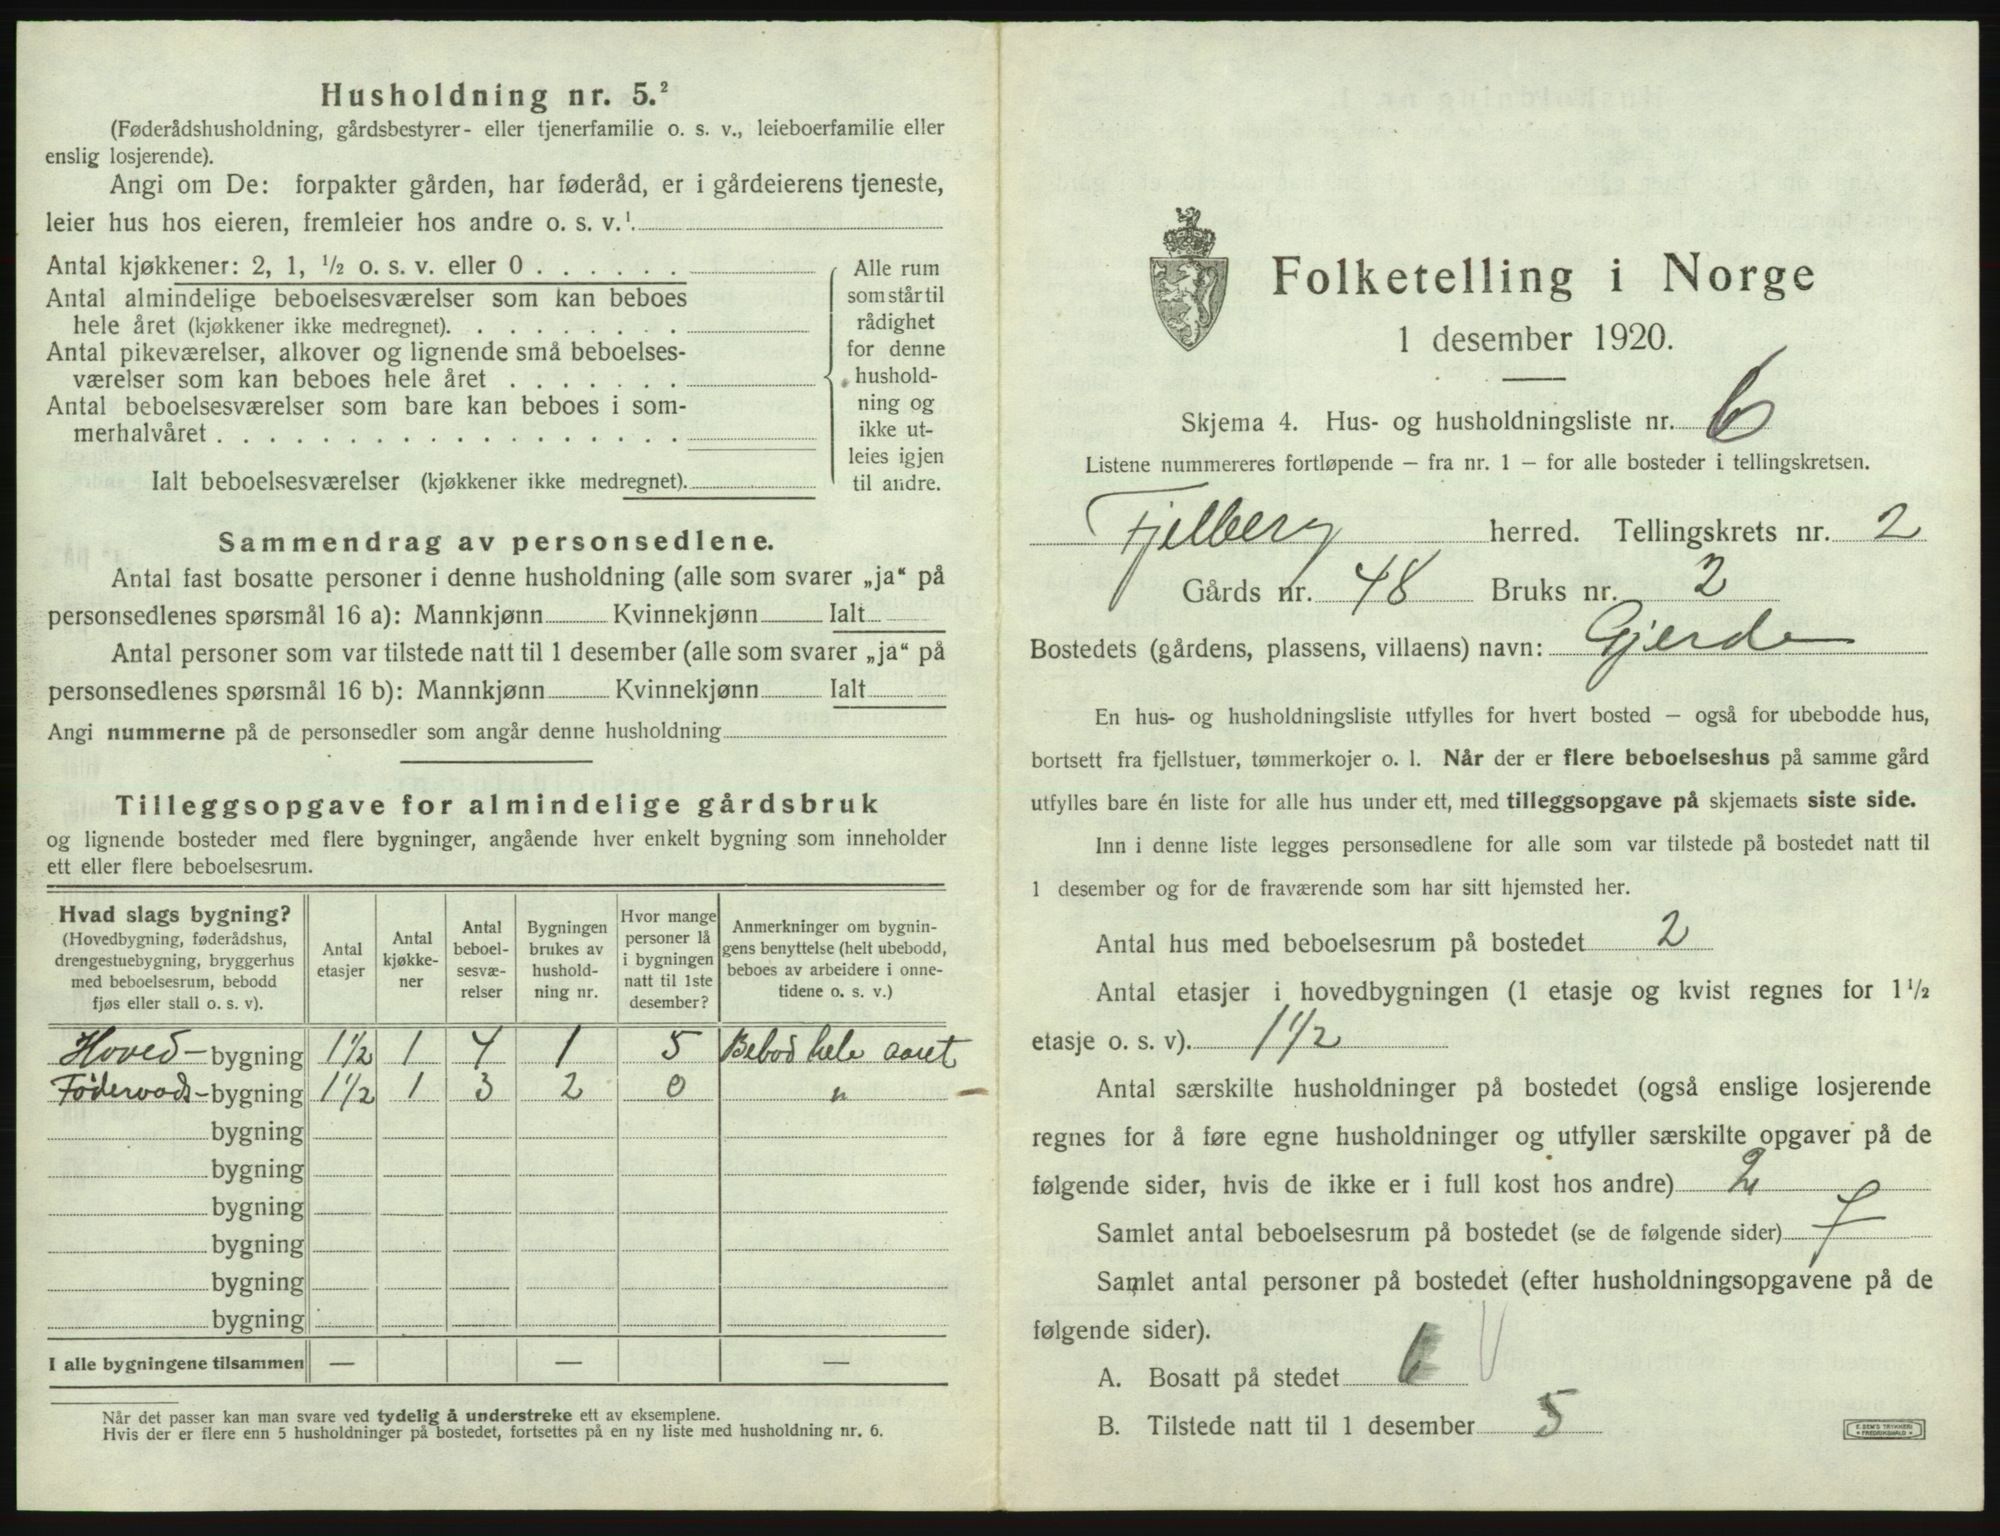 Husholdning nr. 5.²
(Føderådshusholdning, gårdsbestyrer- eller tjenerfamilie o. s. v., leieboerfamilie eller
enslig losjerende).
Angi om De: forpakter gården, har føderåd, er i gårdeierens tjeneste,
leier hus hos eieren, fremleier hos andre o. s. v.¹
Antal kjøkkener: 2, 1, ½ o. s. v. eller 0 . . . . . .
Antal almindelige beboelsesværelser som kan beboes
hele året (kjøkkener ikke medregnet). . . . . . . . .
Antal pikeværelser, alkover og lignende små beboelses-
værelser som kan beboes hele året . . . . . . .
Antal beboelsesværelser som bare kan beboes i som-
merhalvåret . . . . . . . . . . . . . . . . . .
Ialt beboelsesværelser (kjøkkener ikke medregnet).
Alle rum
som står til
rådighet
for denne
hushold-
ning og
ikke ut-
leies igjen
til andre.
Sammendrag av personsedlene.
Antal fast bosatte personer i denne husholdning (alle som svarer „ja“ på
personsedlenes spørsmål 16 a): Mannkjønn Kvinnekjønn Ialt
Antal personer som var tilstede natt til 1 desember (alle som svarer „ja“ på
personsedlenes spørsmål 16 b): Mannkjønn Kvinnekjønn Ialt
Angi nummerne på de personsedler som angår denne husholdning
Tilleggsopgave for almindelige gårdsbruk
og lignende bosteder med flere bygninger, angående hver enkelt bygning som inneholder
ett eller flere beboelsesrum.
Hvad slags bygning?
(Hovedbygning, føderådshus,
drengestuebygning, bryggerhus
med beboelsesrum, bebodd
fjøs eller stall o. s. v).
Antal
etasjer
Antal
kjøkke-
ner
Antal
beboel-
sesvæ-
relser
Bygningen
brukes av
hushold-
ning nr.
Hvor mange
personer lå
i bygningen
natt til 1ste
desember?
Anmerkninger om bygnin-
gens benyttelse (helt ubebodd,
beboes av arbeidere i onne-
tidene o. s. v.)
Hoved-bygning 1½ 1 4 1 5 Bebod hele aaret
Föderaads-bygning 1½ 1 3 2 0 "
bygning
bygning
bygning
bygning
bygning
bygning
I alle bygningene tilsammen — — —
Når det passer kan man svare ved tydelig å understreke ett av eksemplene.
Hvis der er flere enn 5 husholdninger på bostedet, fortsettes på en ny liste med husholdning nr. 6.
Folketelling i Norge
1 desember 1920.
Skjema 4. Hus- og husholdningsliste nr. 6
Listene nummereres fortløpende – fra nr. 1 – for alle bosteder i tellingskretsen.
Fjelberg herred. Tellingskrets nr. 2
Gårds nr. 48 Bruks nr. 2
Bostedets (gårdens, plassens, villaens) navn: Gjerde
En hus- og husholdningsliste utfylles for hvert bosted – også for ubebodde hus,
bortsett fra fjellstuer, tømmerkojer o. l. Når der er flere beboelseshus på samme gård
utfylles bare én liste for alle hus under ett, med tilleggsopgave på skjemaets siste side.
Inn i denne liste legges personsedlene for alle som var tilstede på bostedet natt til
1 desember og for de fraværende som har sitt hjemsted her.
Antal hus med beboelsesrum på bostedet 2
Antal etasjer i hovedbygningen (1 etasje og kvist regnes for 1½
etasje o. s. v). 1½
Antal særskilte husholdninger på bostedet (også enslige losjerende
regnes for å føre egne husholdninger og utfyller særskilte opgaver på de
følgende sider, hvis de ikke er i full kost hos andre) 2
Samlet antal beboelsesrum på bostedet (se de følgende sider) 7
Samlet antal personer på bostedet (efter husholdningsopgavene på de
følgende sider).
A. Bosatt på stedet 6
B. Tilstede natt til 1 desember 5
E. SEM'S TRYKKERI
FREDRIKSHALD